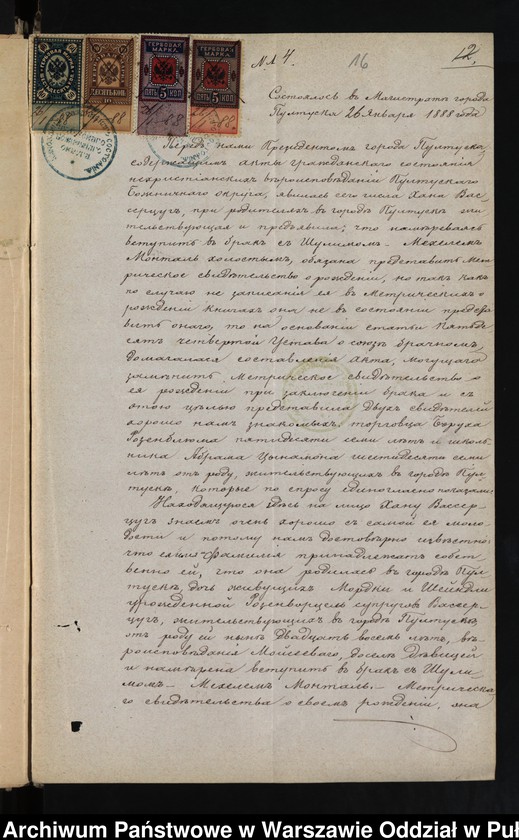 № 4.
16
12.
ГЕРБОВАЯ МАРКА
ПЯТЬ 5 КОП
ГЕРБОВАЯ МАРКА
ПЯТЬ 5 КОП
Состоялось въ Магистратѣ города
Пултуска 26 Января 1888 года
Предъ нами Президентомъ города Пултуска,
содержащимъ акты гражданскаго состоянія
нехристіанскихъ вѣроисповѣданій Пултускаго
Божничнаго округа, явилась сего числа Хана Вас-
серцугъ, при родителяхъ въ городѣ Пултускѣ жи-
тельствующая и предъявила; что намѣреваясь
вступить въ бракъ съ Шулимомъ-Мехелемъ
Монталь холостымъ, обязана представить Мет-
рическое свидѣтельство о рожденіи, но такъ какъ
по случаю не записанія ея въ метрическихъ о
рожденіи книгахъ она не въ состояніи предста-
вить онаго, то на основаніи статьи пятьде-
сятъ четвертой Устава о союзѣ брачномъ,
домагалася составленія акта, могущаго
замѣнить Метрическое свидѣтельство о
ея рожденіи при заключеніи брака и съ
этою цѣлью представила двухъ свидѣтелей
хорошо намъ знакомыхъ торговца Боруха
Розенблюма пятидесяти семи лѣтъ и школь-
ника Абрама Цынамона шестидесяти семи
лѣтъ отъ роду, жительствующихъ въ городѣ Пул-
тускѣ, которые по спросу единогласно показали:
Находящуюся здѣсь на лицо Хану Вассер-
цугъ знаемъ очень хорошо съ самой ея моло-
дости и потому намъ достовѣрно извѣстно:
что имя и фамилія принадлежатъ собст-
венно ей, что она родилась въ городѣ Пул-
тускѣ, дочь живущихъ Мордки и Шейндли
урожденной Розенворцель супруговъ Вассер-
цугъ, жительствующихъ въ городѣ Пултускѣ,
отъ роду ей нынѣ двадцать восемь лѣтъ, вѣ-
роисповѣданія Моисеева, доселѣ дѣвицей
и намѣрена вступить въ бракъ съ Шули-
момъ-Мехелемъ Монталь. - Метрическа-
го свидѣтельства о своемъ рожденіи, она
Archiwum Państwowe w Warszawie Oddział w Puł